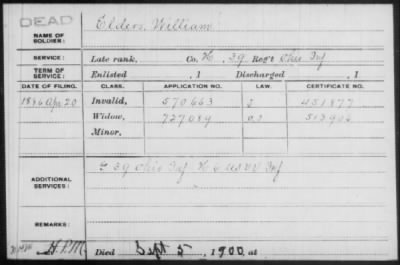 DEAD
Elders, William
NAME OF SOLDIER:
SERVICE: Late rank, Co. K, 39 Reg't Ohio Inf
TERM OF SERVICE: Enlisted , 1 Discharged , 1
DATE OF FILING. CLASS. APPLICATION NO. LAW. CERTIFICATE NO.
1896 Apr 20 Invalid, 570663 451877
Widow, 727089
Minor,
ADDITIONAL SERVICES: 39 Ohio Inf K 6 US VV Inf
REMARKS:
Died Sept 5, 1900, at